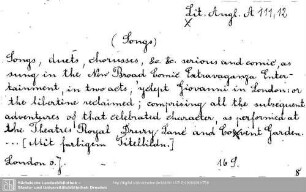 Lit. Angl. A 111,12
(Songs)
Songs, duets, chorusses, &c. &c. serious and comic, as
sung in the New Broad Comic Extravaganza Enter-
tainment, in two acts, 'yclept Giovanni in London: or
the libertine reclaimed; comprising all the subsequent
adventures of that celebrated character, as performed at
the Theatres Royal Drury Lane and Covent Garden.
... [Mit farbigem Titelbilde.]
London o. J. - 16 S.